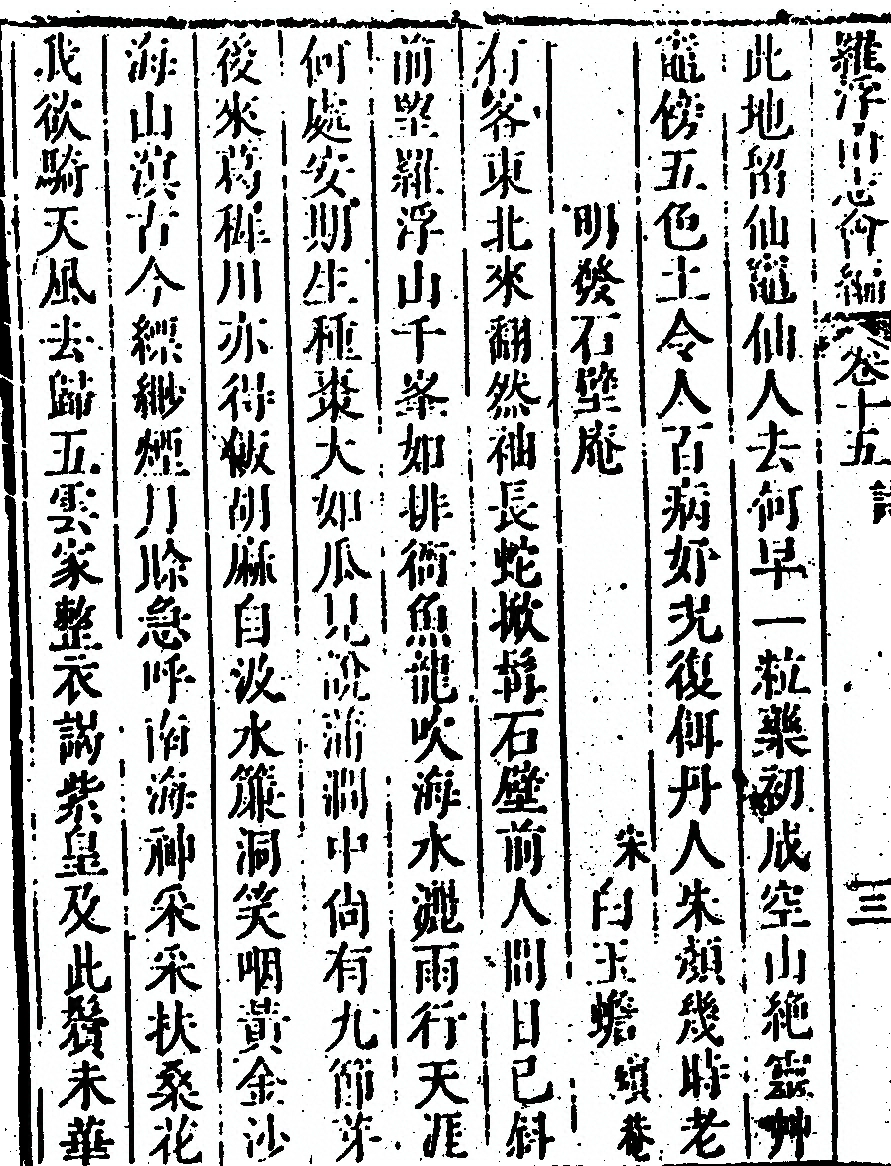 羅浮山志會編 卷十五 詩 三
此地留仙竈仙人去何早一粒藥初成空山絶靈艸
竈傍五色土令人百病好光復餌丹人朱顔幾時老
明發石壁庵 宋白玉蟾 瓊菴
行客東北來翻然袖長蛇掀髯石壁前人間日已斜
前望羅浮山千峯如排衙魚龍吹海水灑雨行天涯
何處安期生種棗大如瓜見說蒲澗中尙有九節芽
後來葛稚川亦得飯胡麻自汲水簾洞笑咽黃金沙
海山滇古今縹緲煙月賒急呼南海神采采扶桑花
我欲騎天風去歸五雲家整衣謁紫皇及此鬢未華